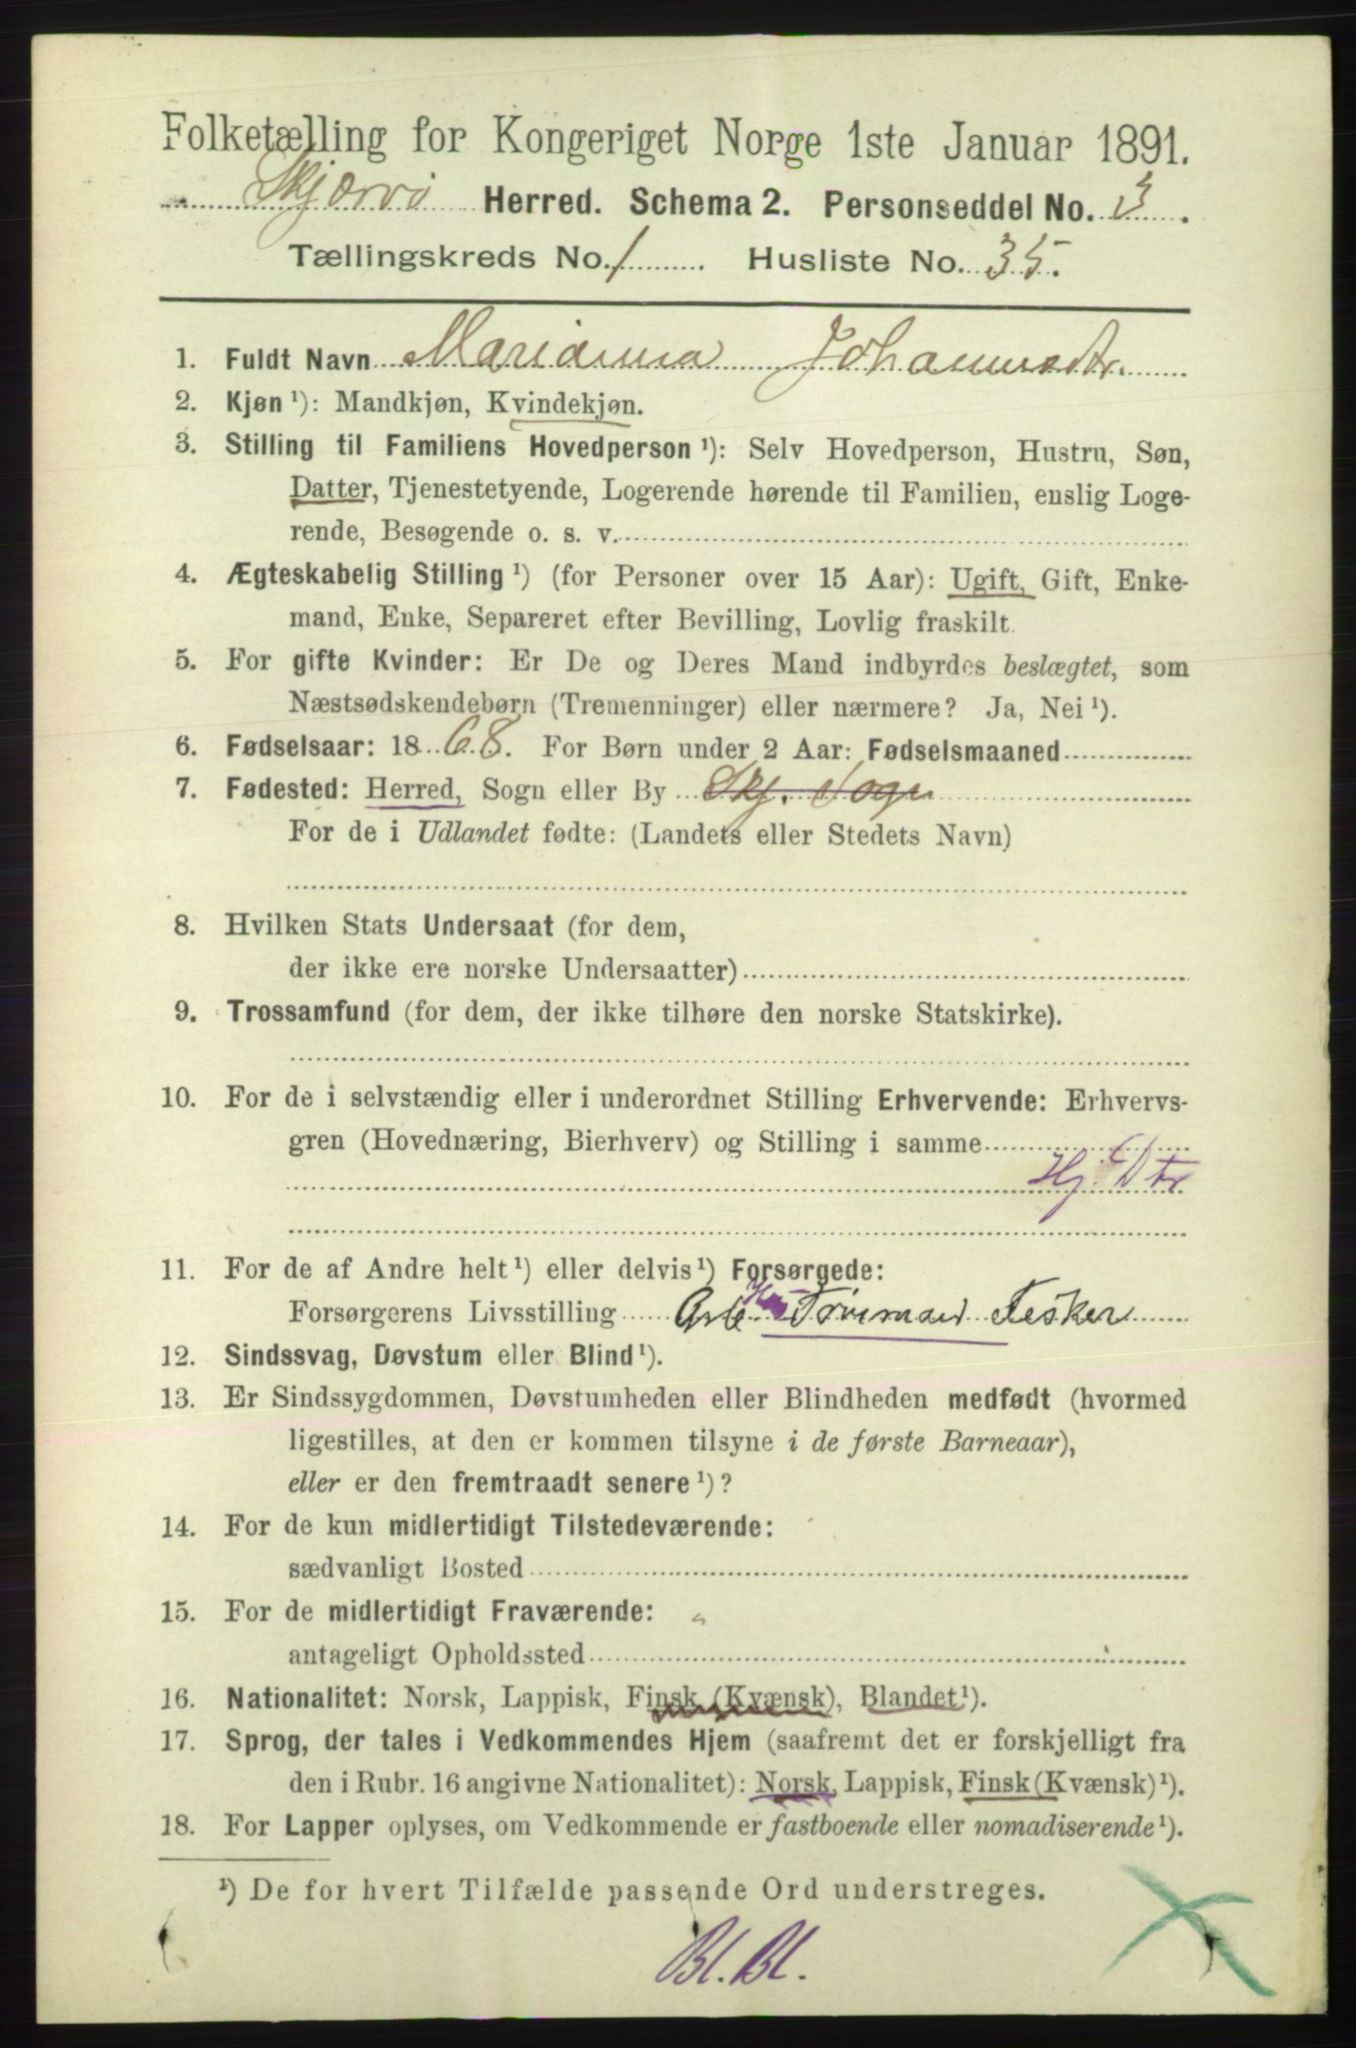 Folketælling for Kongeriget Norge 1ste Januar 1891.
Skjærvø Herred. Schema 2. Personseddel No. 3.
Tællingskreds No. 1 Husliste No. 35.
1. Fuldt Navn Marianna Johannesdtr.
2. Kjøn ¹): Mandkjøn, Kvindekjøn.
3. Stilling til Familiens Hovedperson ¹): Selv Hovedperson, Hustru, Søn,
Datter, Tjenestetyende, Logerende hørende til Familien, enslig Loge-
rende, Besøgende o. s. v.
4. Ægteskabelig Stilling ¹) (for Personer over 15 Aar): Ugift, Gift, Enke-
mand, Enke, Separeret efter Bevilling, Lovlig fraskilt.
5. For gifte Kvinder: Er De og Deres Mand indbyrdes beslægtet, som
Næstsødskendebørn (Tremenninger) eller nærmere? Ja, Nei ¹).
6. Fødselsaar: 1868. For Børn under 2 Aar: Fødselsmaaned
7. Fødested: Herred, Sogn eller By Skj. Sogn
For de i Udlandet fødte: (Landets eller Stedets Navn)
8. Hvilken Stats Undersaat (for dem,
der ikke ere norske Undersaatter)
9. Trossamfund (for dem, der ikke tilhøre den norske Statskirke).
10. For de i selvstændig eller i underordnet Stilling Erhvervende: Erhvervs-
gren (Hovednæring, Bierhverv) og Stilling i samme
Hj. Dtr
11. For de af Andre helt ¹) eller delvis ¹) Forsørgede:
Forsørgerens Livsstilling Fisker
12. Sindssvag, Døvstum eller Blind ¹).
13. Er Sindssygdommen, Døvstumheden eller Blindheden medfødt (hvormed
ligestilles, at den er kommen tilsyne i de første Barneaar),
eller er den fremtraadt senere ¹)?
14. For de kun midlertidigt Tilstedeværende:
sædvanligt Bosted
15. For de midlertidigt Fraværende:
antageligt Opholdssted
16. Nationalitet: Norsk, Lappisk, Finsk (Kvænsk), Blandet ¹).
17. Sprog, der tales i Vedkommendes Hjem (saafremt det er forskjelligt fra
den i Rubr. 16 angivne Nationalitet): Norsk, Lappisk, Finsk (Kvænsk) ¹).
18. For Lapper oplyses, om Vedkommende er fastboende eller nomadiserende ¹).
¹) De for hvert Tilfælde passende Ord understreges.
Bl. Bl.